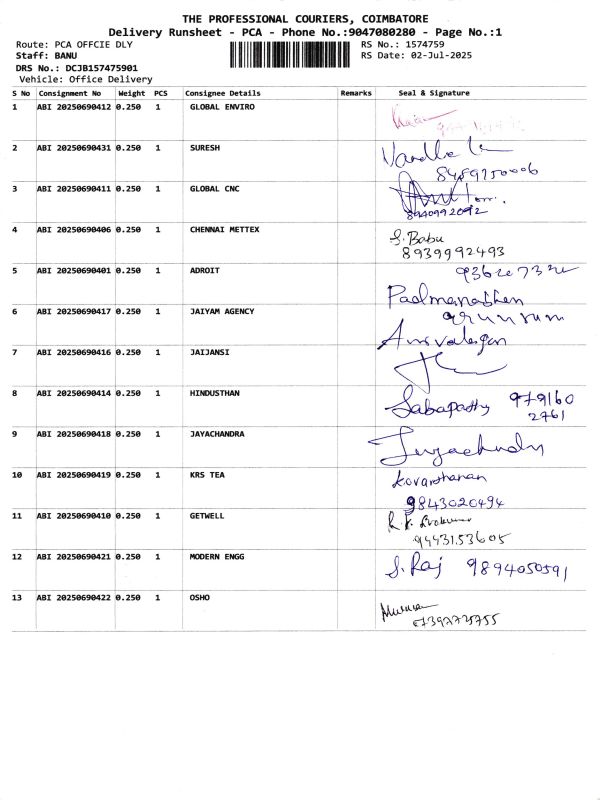 THE PROFESSIONAL COURIERS, COIMBATORE
Delivery Runsheet - PCA - Phone No.:9047080280 - Page No.:1
Route: PCA OFFCIE DLY RS No.: 1574759
Staff: BANU RS Date: 02-Jul-2025
DRS No.: DCJB157475901
Vehicle: Office Delivery
S No Consignment No Weight PCS Consignee Details Remarks Seal & Signature
1 ABI 20250690412 0.250 1 GLOBAL ENVIRO
2 ABI 20250690431 0.250 1 SURESH
8489750006
3 ABI 20250690411 0.250 1 GLOBAL CNC
8940992092
4 ABI 20250690406 0.250 1 CHENNAI METTEX S. Babu
8939992493
5 ABI 20250690401 0.250 1 ADROIT
Padmanabhan
6 ABI 20250690417 0.250 1 JAIYAM AGENCY
7 ABI 20250690416 0.250 1 JAIJANSI
8 ABI 20250690414 0.250 1 HINDUSTHAN Sabapathy 979160
2761
9 ABI 20250690418 0.250 1 JAYACHANDRA
10 ABI 20250690419 0.250 1 KRS TEA Kovarthanan
9843020494
11 ABI 20250690410 0.250 1 GETWELL
9443153605
12 ABI 20250690421 0.250 1 MODERN ENGG S. Raj 9894050591
13 ABI 20250690422 0.250 1 OSHO